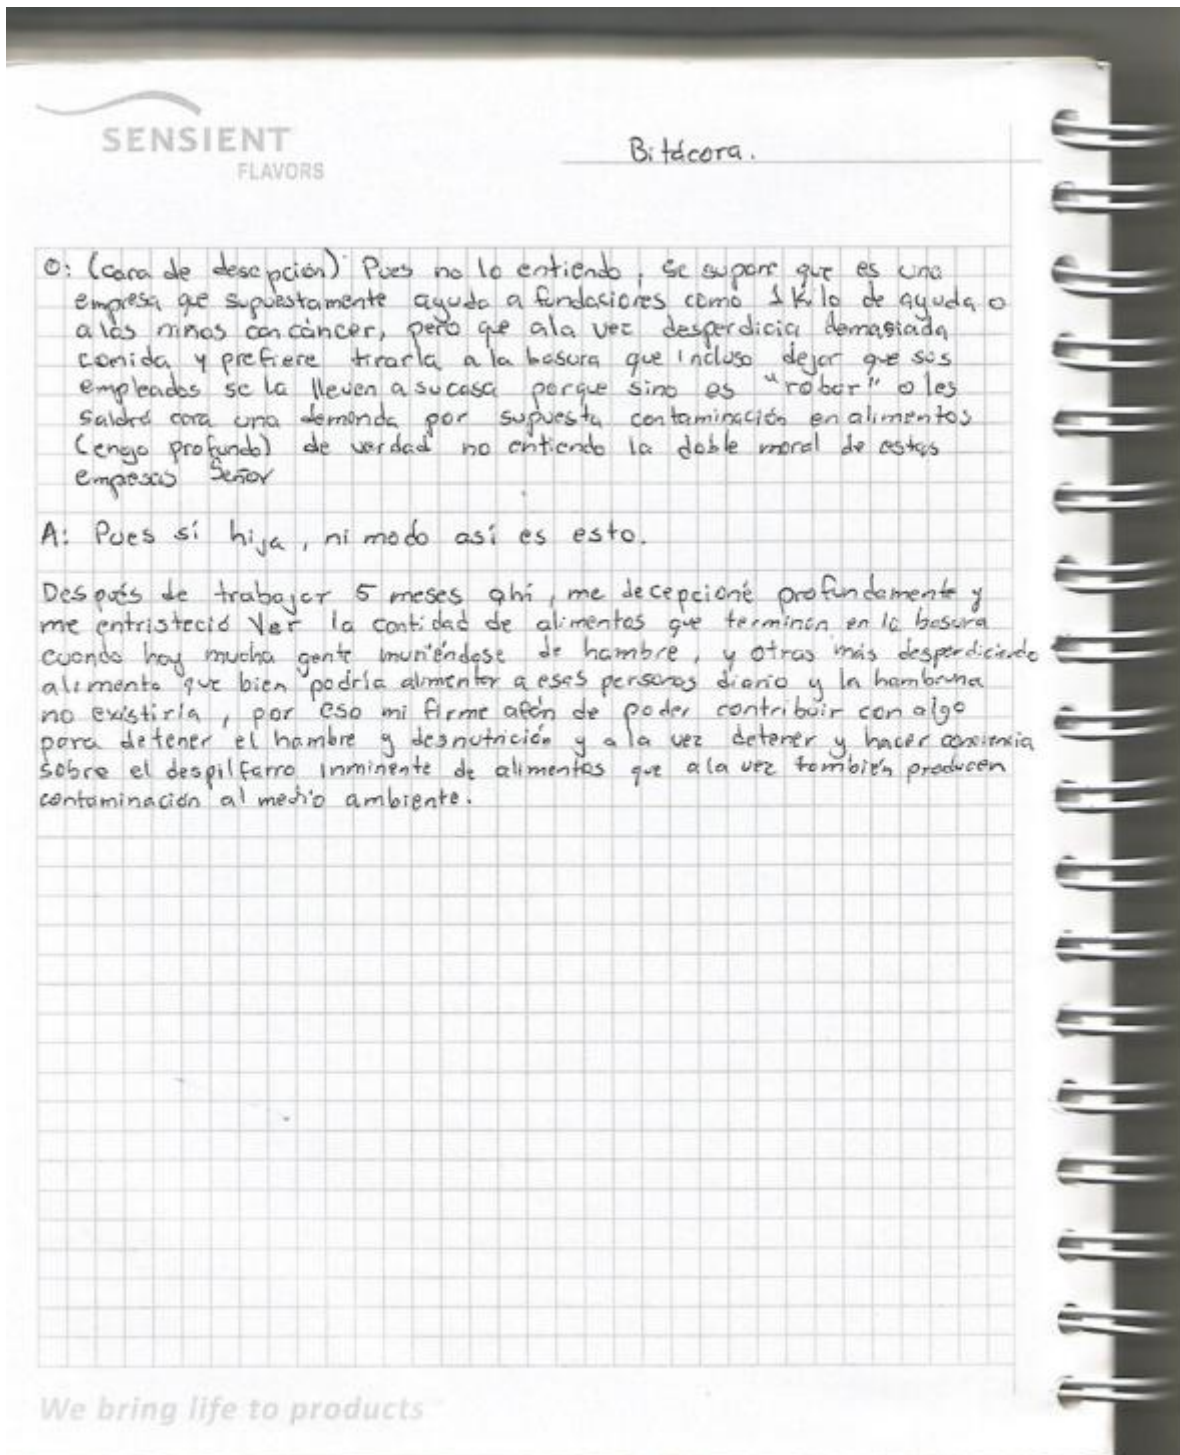 SENSIENT
FLAVORS
Bitácora.
O: (cara de desepción) Pues no lo entiendo, se supone que es una
empresa que supuestamente ayuda a fundaciones como 1 Kilo de ayuda o
a los niños con cáncer, pero que ala vez desperdicia demasiada
comida y prefiere tirarla a la basura que incluso dejar que sus
empleados se la lleven a su casa porque sino es "robar" o les
saldrá cara una demanda por supuesta contaminación en alimentos
(enojo profundo) de verdad no entiendo la doble moral de estas
empesas Señor
A: Pues sí hija, ni modo así es esto.
Después de trabajar 5 meses ahí, me decepcioné profundamente y
me entristeció Ver la cantidad de alimentos que terminan en la basura
cuando hay mucha gente muriéndose de hambre, y otras más desperdiciando
alimento que bien podría alimentar a esas personas diario y la hambruna
no existiría, por eso mi firme afán de poder contribuir con algo
para detener el hambre y desnutrición y a la vez detener y hacer conciencia
sobre el despilfarro inminente de alimentos que ala vez también producen
contaminación al medio ambiente.
We bring life to products